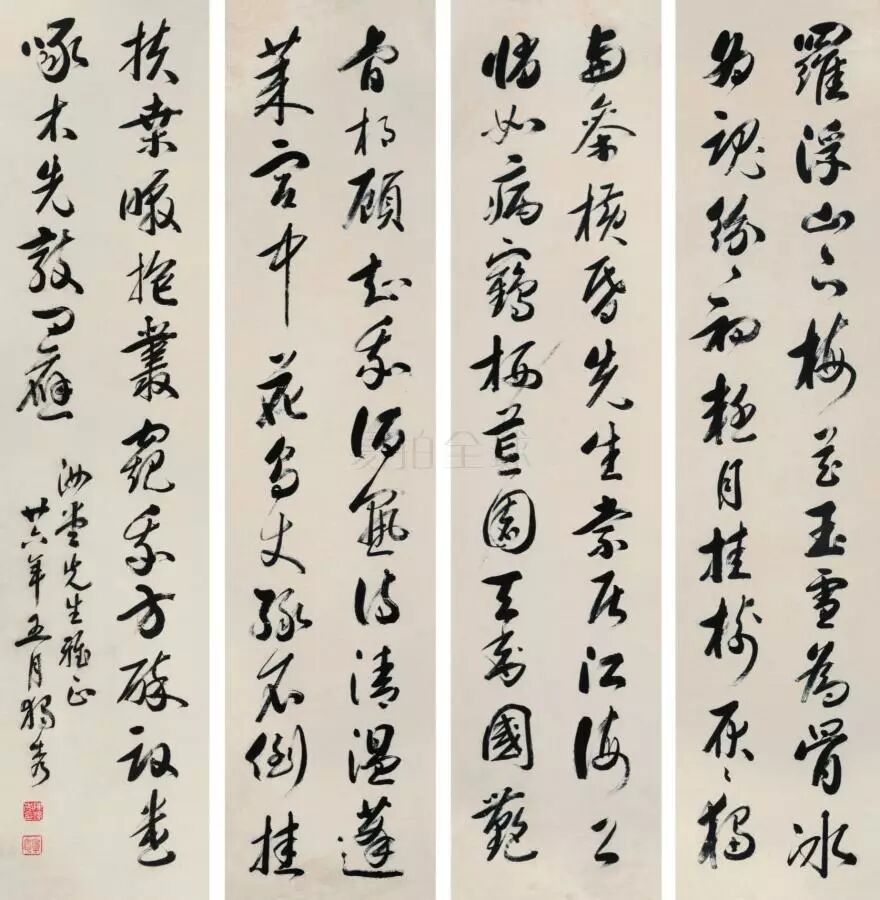 羅浮山下梅花玉雪為骨冰
為魂紛〻初疑月挂樹耿〻獨
與參橫昏先生索居江海上
悄如病鶴栖荒園天香國艷
肯相顧知我酒熟詩清溫蓬
萊宮中花鳥使綠衣倒挂
扶桑暾抱叢窺我方醉臥遣
啄木先敲門
先生雅正
廿六年五月獨秀
易拍全球